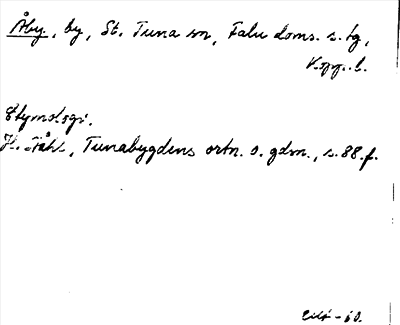 Åby, by, St. Tuna sn, Falu doms. s. tg,
Kopp. l.
Etymologi.
H. Ståhl, Tunabygdens ortn. o. gdsn., s. 88. f.